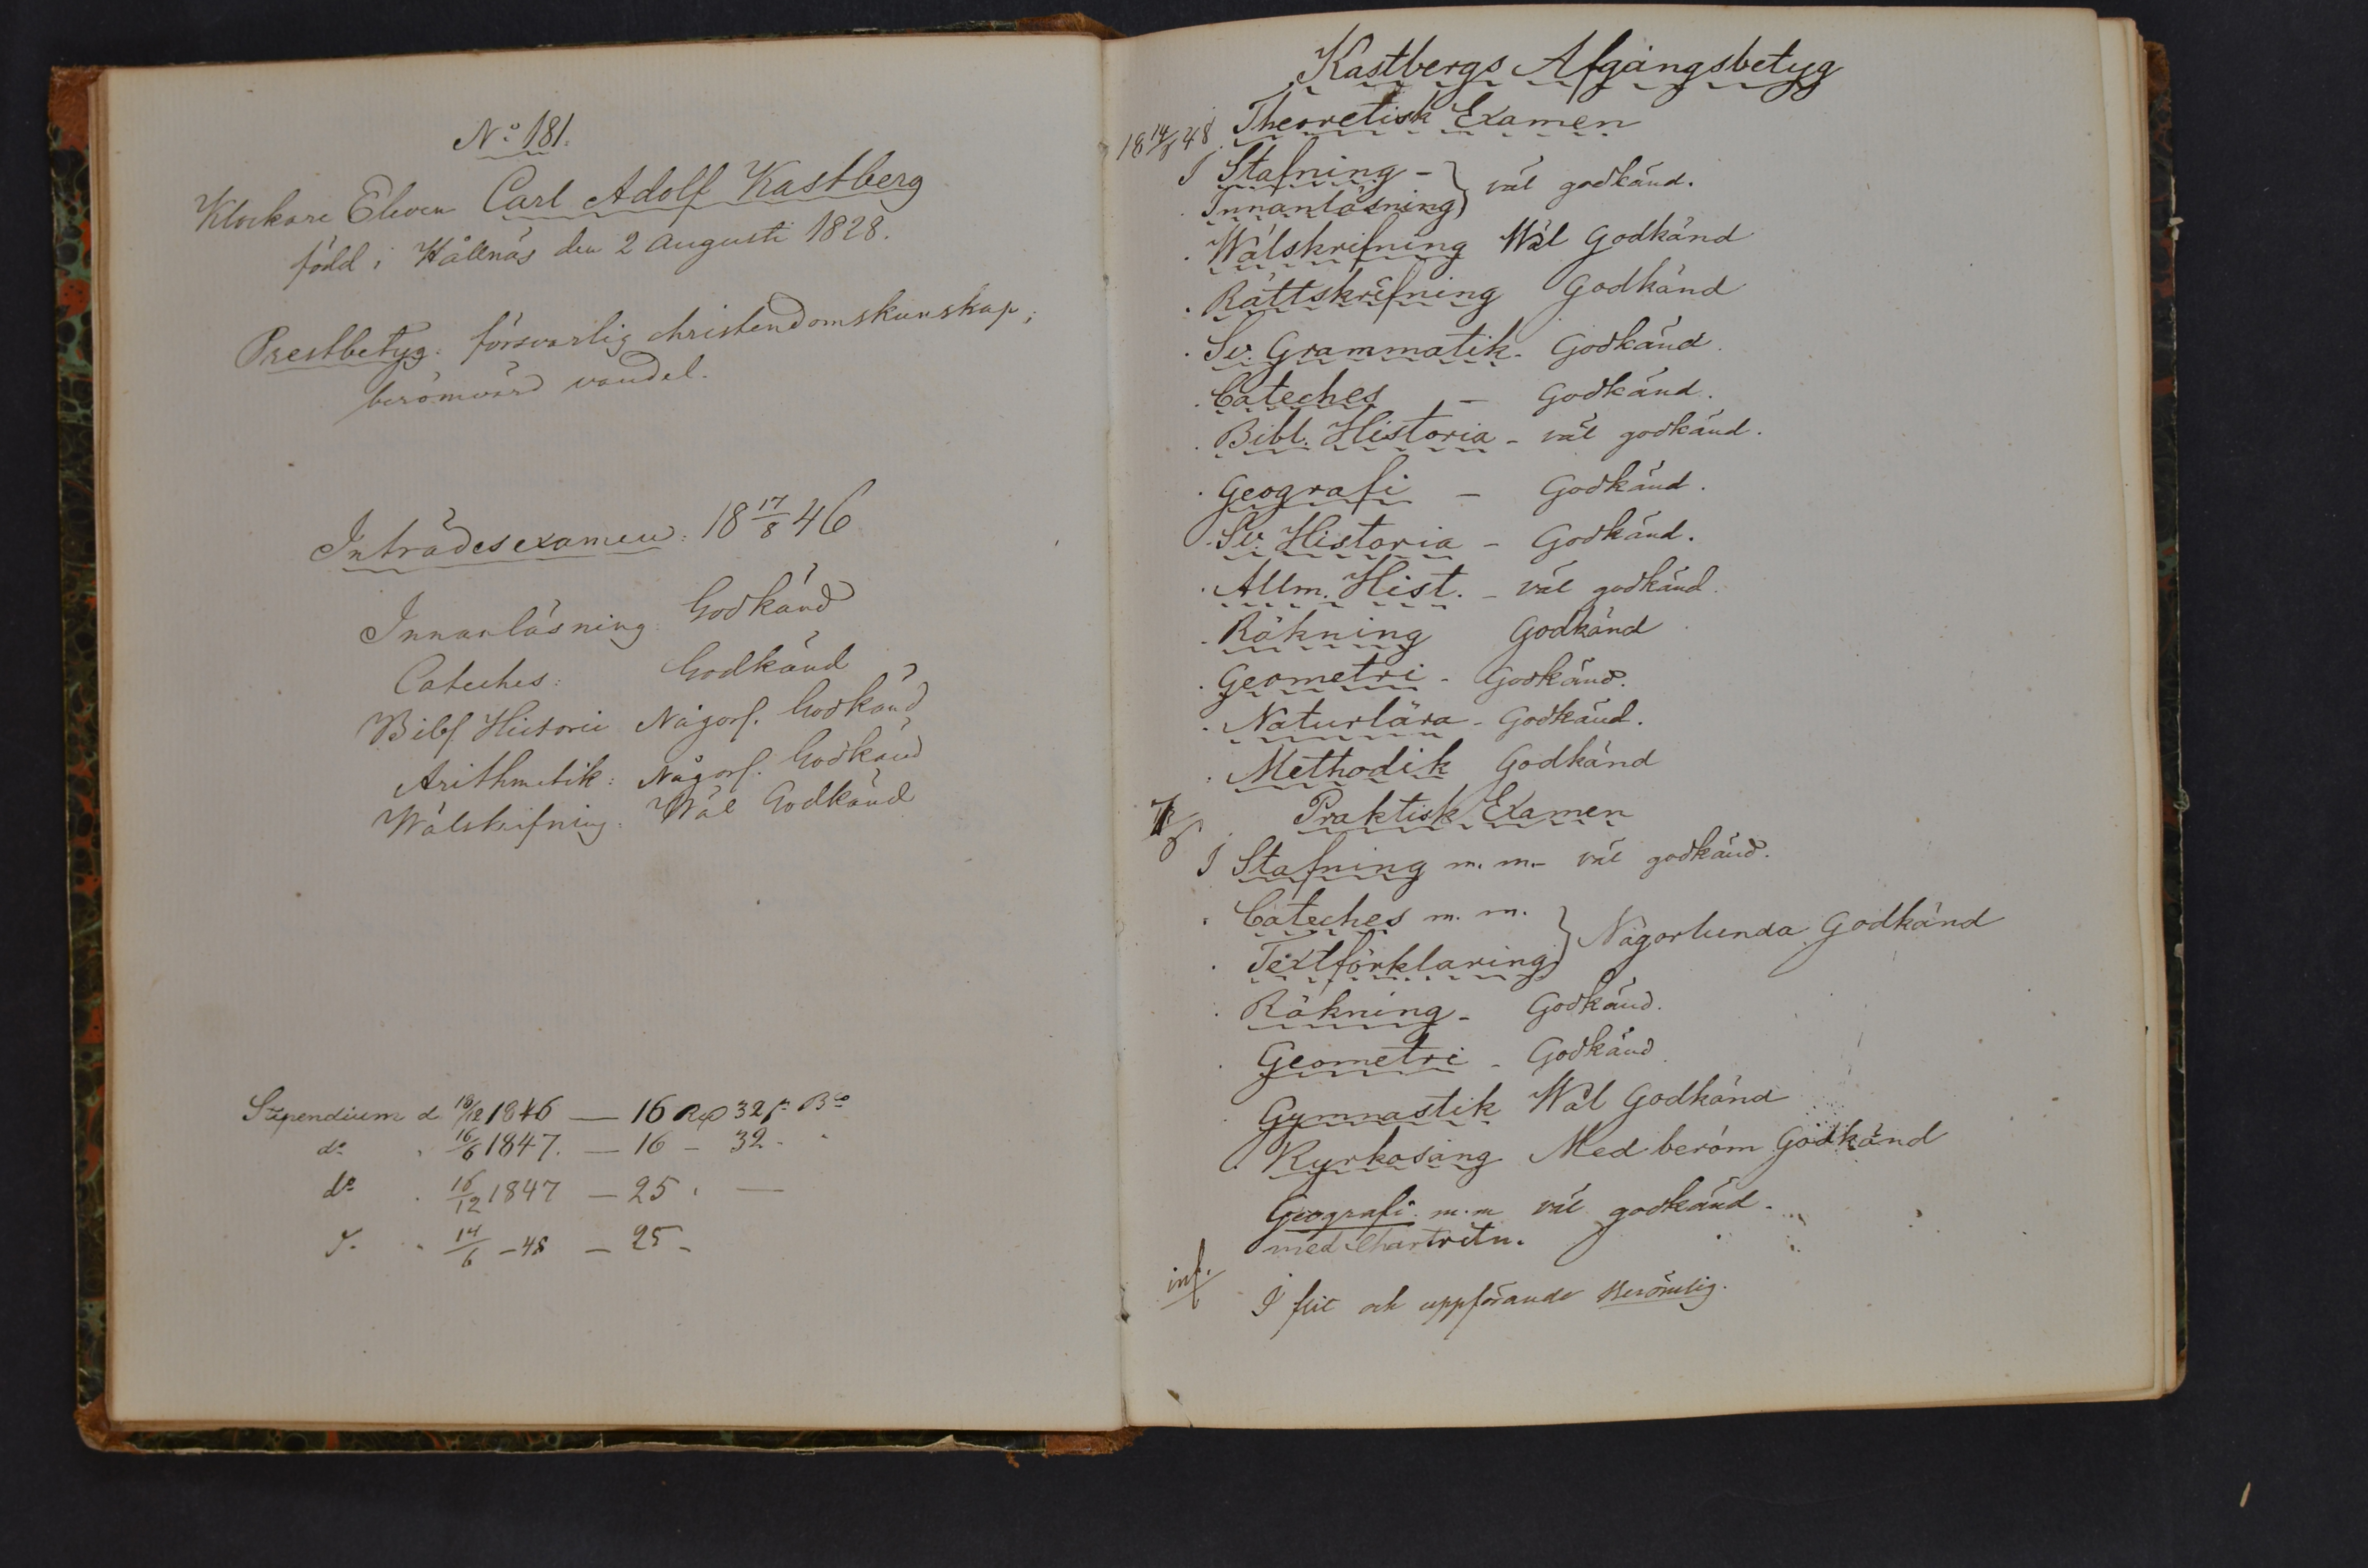 No 181.
Klockare Eleven Carl Adolf Kastberg
född i Hållnäs den 2 Augusti 1828.
Prestbetyg: försvarlig christendomskunskap;
berömvärd vandel.
Inträdesexamen: 18 17/8 46
Innanläsning Godkänd
Cateches: Godkänd
Bibl Historie Någorl. Godkänd
Arithmetik: Någorl. Godkänd
Wälskrifning. Wäl Godkänd
Stipendium d 18/12 1846 — 16 Rd 32 s Bco
do 16/6 1847. — 16 – 32 -
do 16/12 1847 — 25 . —
14/6 – 48 – 25 -
Kastbergs Afgångsbetyg
18 14/6 48. Theoretisk Examen
I Stafning – } väl godkänd.
Innanläsning
Wälskrifning Wäl Godkänd
Rättskrifning Godkänd
Sv. Grammatik. Godkänd.
Cateches – Godkänd.
Bibl. Historia – väl godkänd.
Geografi – Godkänd.
Sv. Historia – Godkänd.
Allm. Hist. – väl godkänd.
Räkning Godkänd
Geometri – Godkänd.
Naturlära – Godkänd.
Methodik Godkänd
Praktisk Examen
I Stafning m. m. – väl godkänd.
Cateches m. m. } Någorlunda Godkänd
Textförklaring
Räkning – Godkänd.
Geometri – Godkänd
Gymnastik Wäl Godkänd
Kyrkosång Med beröm Godkänd
Geografi m.m väl godkänd.
med Chartritn.
I flit och uppförande Berömlig.